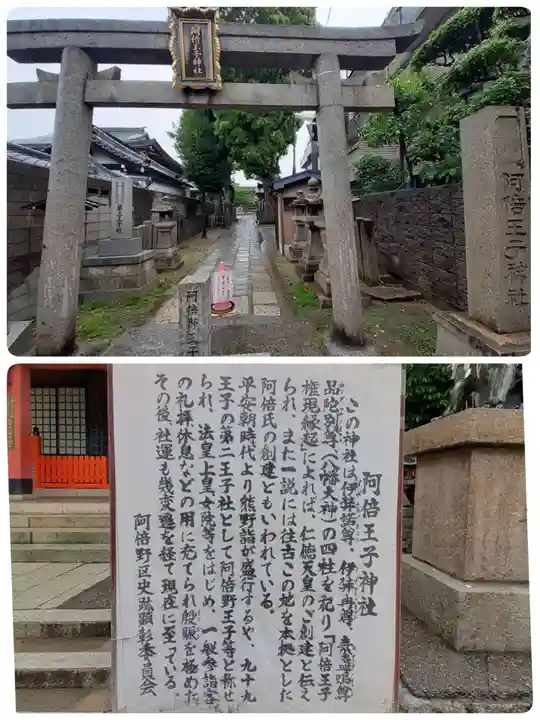 阿倍王子神社
阿倍王子神社
阿倍野王子
阿倍王子神社
この神社は伊弉諾尊、伊弉冉尊、素盞嗚尊
品陀別尊(八幡大神)の四柱を祀り「阿倍王子
権現縁起」によれば、仁徳天皇のご創建と伝え
られ、また一説には往古この地を本拠とした
阿倍氏の創建ともいわれている。
平安朝時代より熊野詣が盛行するや、九十九
王子の第二王子社として阿倍野王子等と称せ
られ、法皇上皇女院等をはじめ、一般参詣客
の礼拝休息などの用に充てられ殷賑を極めた
その後、社運も幾変遷を経て現在に至っている。
阿倍野区史跡顕彰委員会